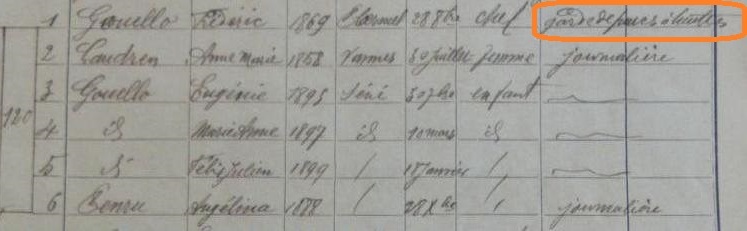 1 Gouello Fédéric 1869 Elarmel 28 8bre chef garde de parcs à huitres
2 Caudren Anne Marie 1858 Vannes 30 juillet femme journalière
3 Gouello Eugénie 1893 Séné 30 7bre enfant
120
4 id Marie Anne 1897 id 10 mars id
5 id Félix Julien 1899 / 18 janvier /
6 Angélina 1888 / 28 Xbre / journalière